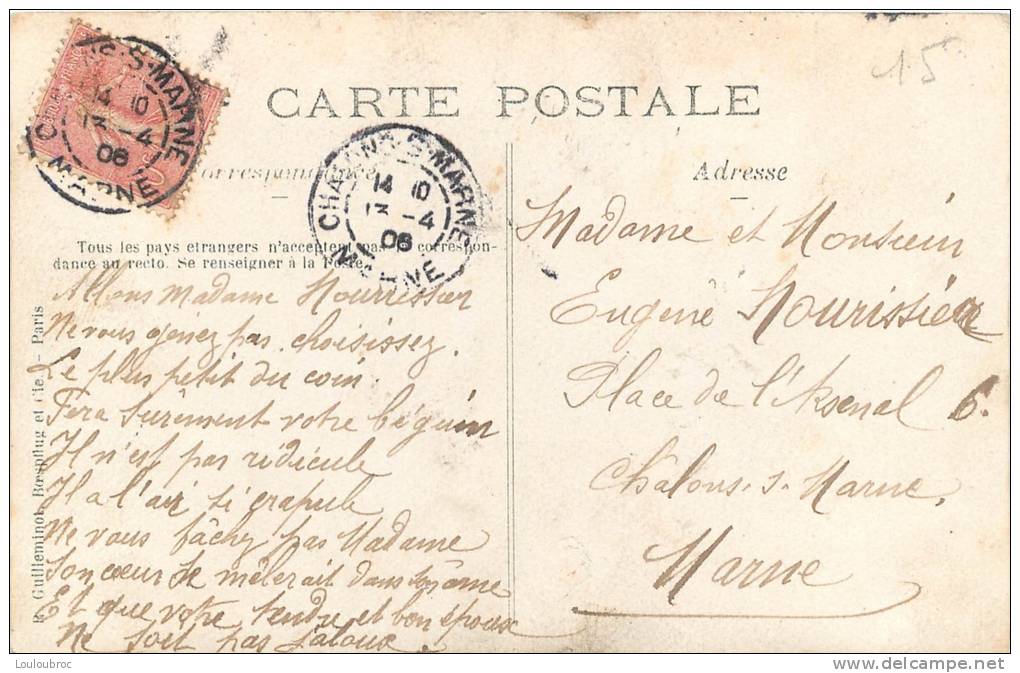 15
CARTE POSTALE
Correspondance
Adresse
CHALONS-S-MARNE
14 10
13 -4
06
MARNE
CHALONS-S-MARNE
14 10
13 -4
06
MARNE
Tous les pays etrangers n'acceptent pas la correspon-
dance au recto. Se renseigner à la Poste.
Allons Madame Nourrissier
Ne vous gênez pas choisissez.
Le plus petit du coin.
Fera surêment votre béguin
Il n'est pas ridicule
Il a l'air si crapule
Ne vous fâchez pas Madame
Son cœur se mêlerait dans âme
Et que votre tendre et bon époux
Ne soit pas jaloux.
Madame et Monsieur
Eugène Nourissier
Place de l'Arsenal 6.
Châlons. s. Marne.
Marne
R. Guilleminot, Bœspflug et Cie. - Paris
Louloubroc
delcampe.net